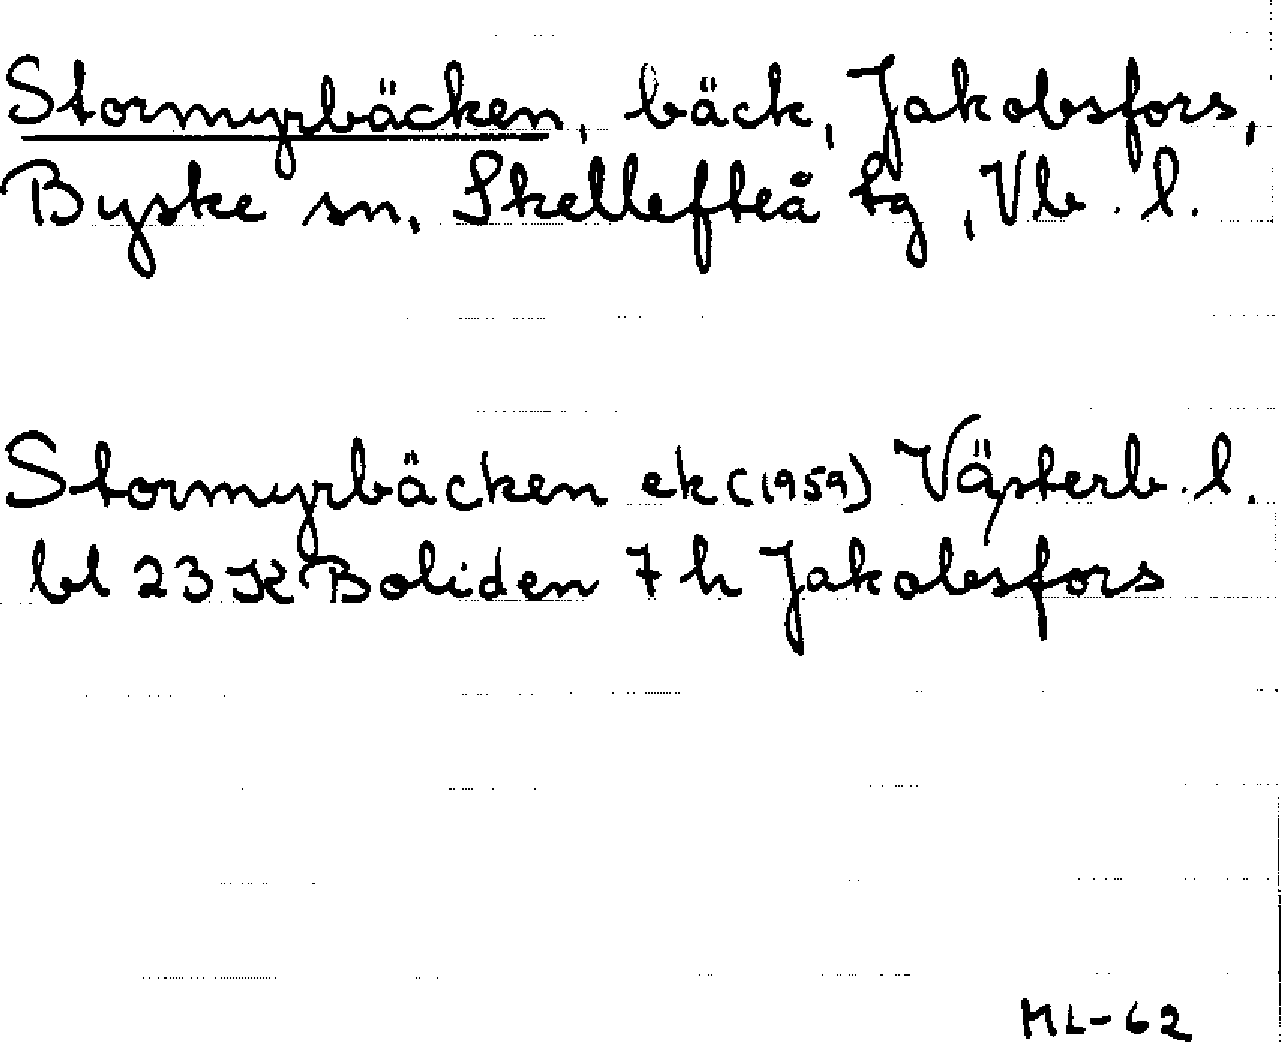 Stormyrbäcken, bäck, Jakobsfors,
Byske sn, Skellefteå tg, Vb. l.
Stormyrbäcken ek (1959) Västerb. l.
bl 23 K Boliden 7 h Jakobsfors
ML-62